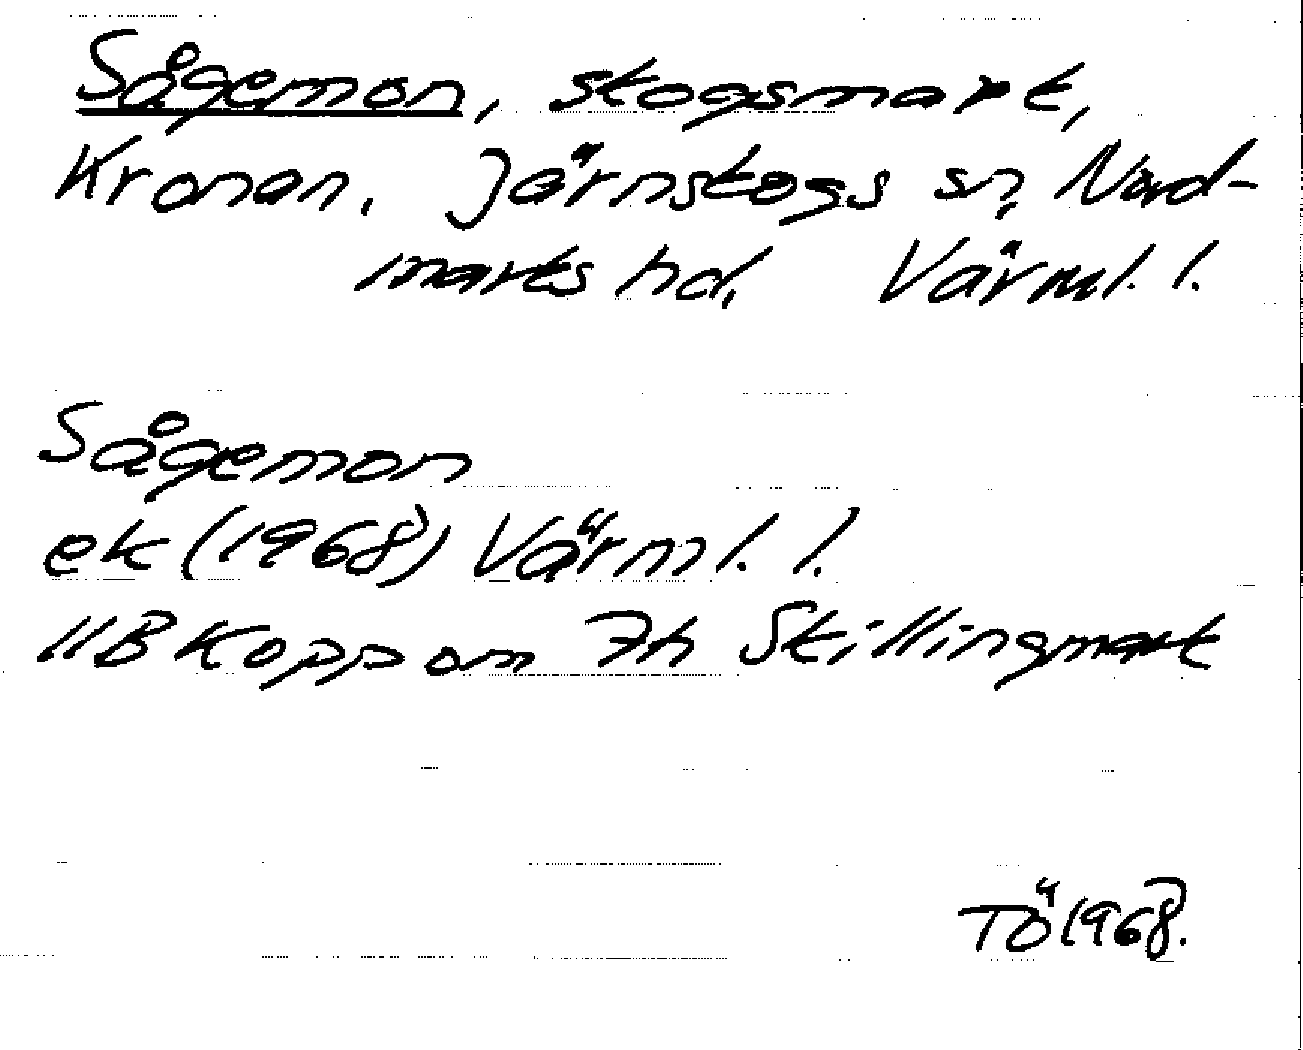 Sågemon, skogsmark,
Kronan, Järnskogs sn, Nord-
marks hd, Värml. l.
Sågemon
ek (1968) Värml. l.
11B Koppom 7h Skillingmark
TÖ 1968.